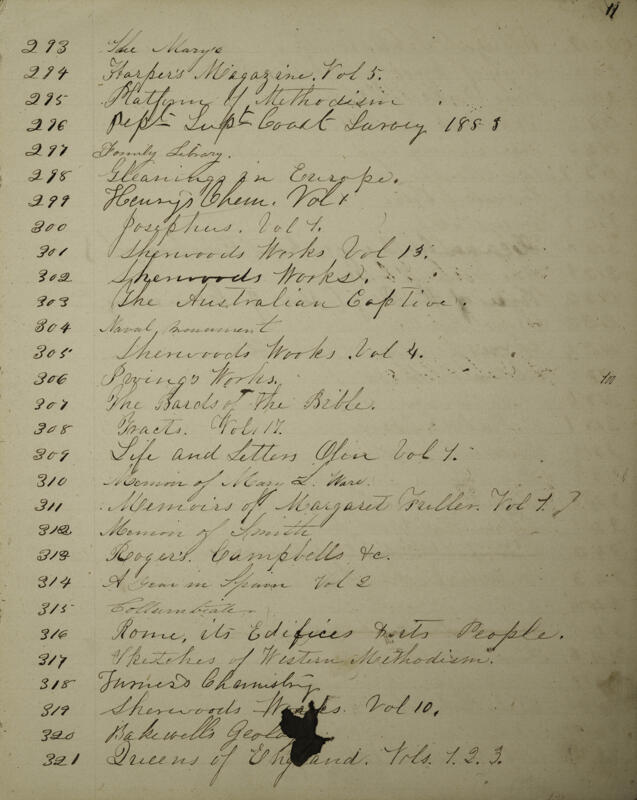 11
293 The Mary's
294 Harper's Magazine. Vol 5.
295 Platform of Methodism
296 Rept Supt Coast Survey 1853
297 Family Library.
298 Gleanings in Europe.
299 Henry's Chem. Vol 1
300 Josephus. Vol 1.
301 Sherwoods Works Vol 13.
302 Sherwoods Works.
303 The Australian Captive.
304 Naval monument
305 Sherwoods Works. Vol 4.
306 Irving's Works.
307 The Bards of The Bible.
308 Tracts. Vol. 17.
309 Life and Letters Olin Vol 1.
310 Memoir of Mary L. Ware.
311 Memoirs of Margaret Fuller. Vol 1.
312 Memoir of Smith
313 Rogers. Campbells &c.
314 A Year in Spain Vol 2
315
316 Rome, its Edifices & its People.
317 Sketches of Western Methodism.
318 Turners Chemistry
319 Sherwoods Works. Vol 10.
320 Bakewells
321 Queens of England. Vols. 1. 2. 3.